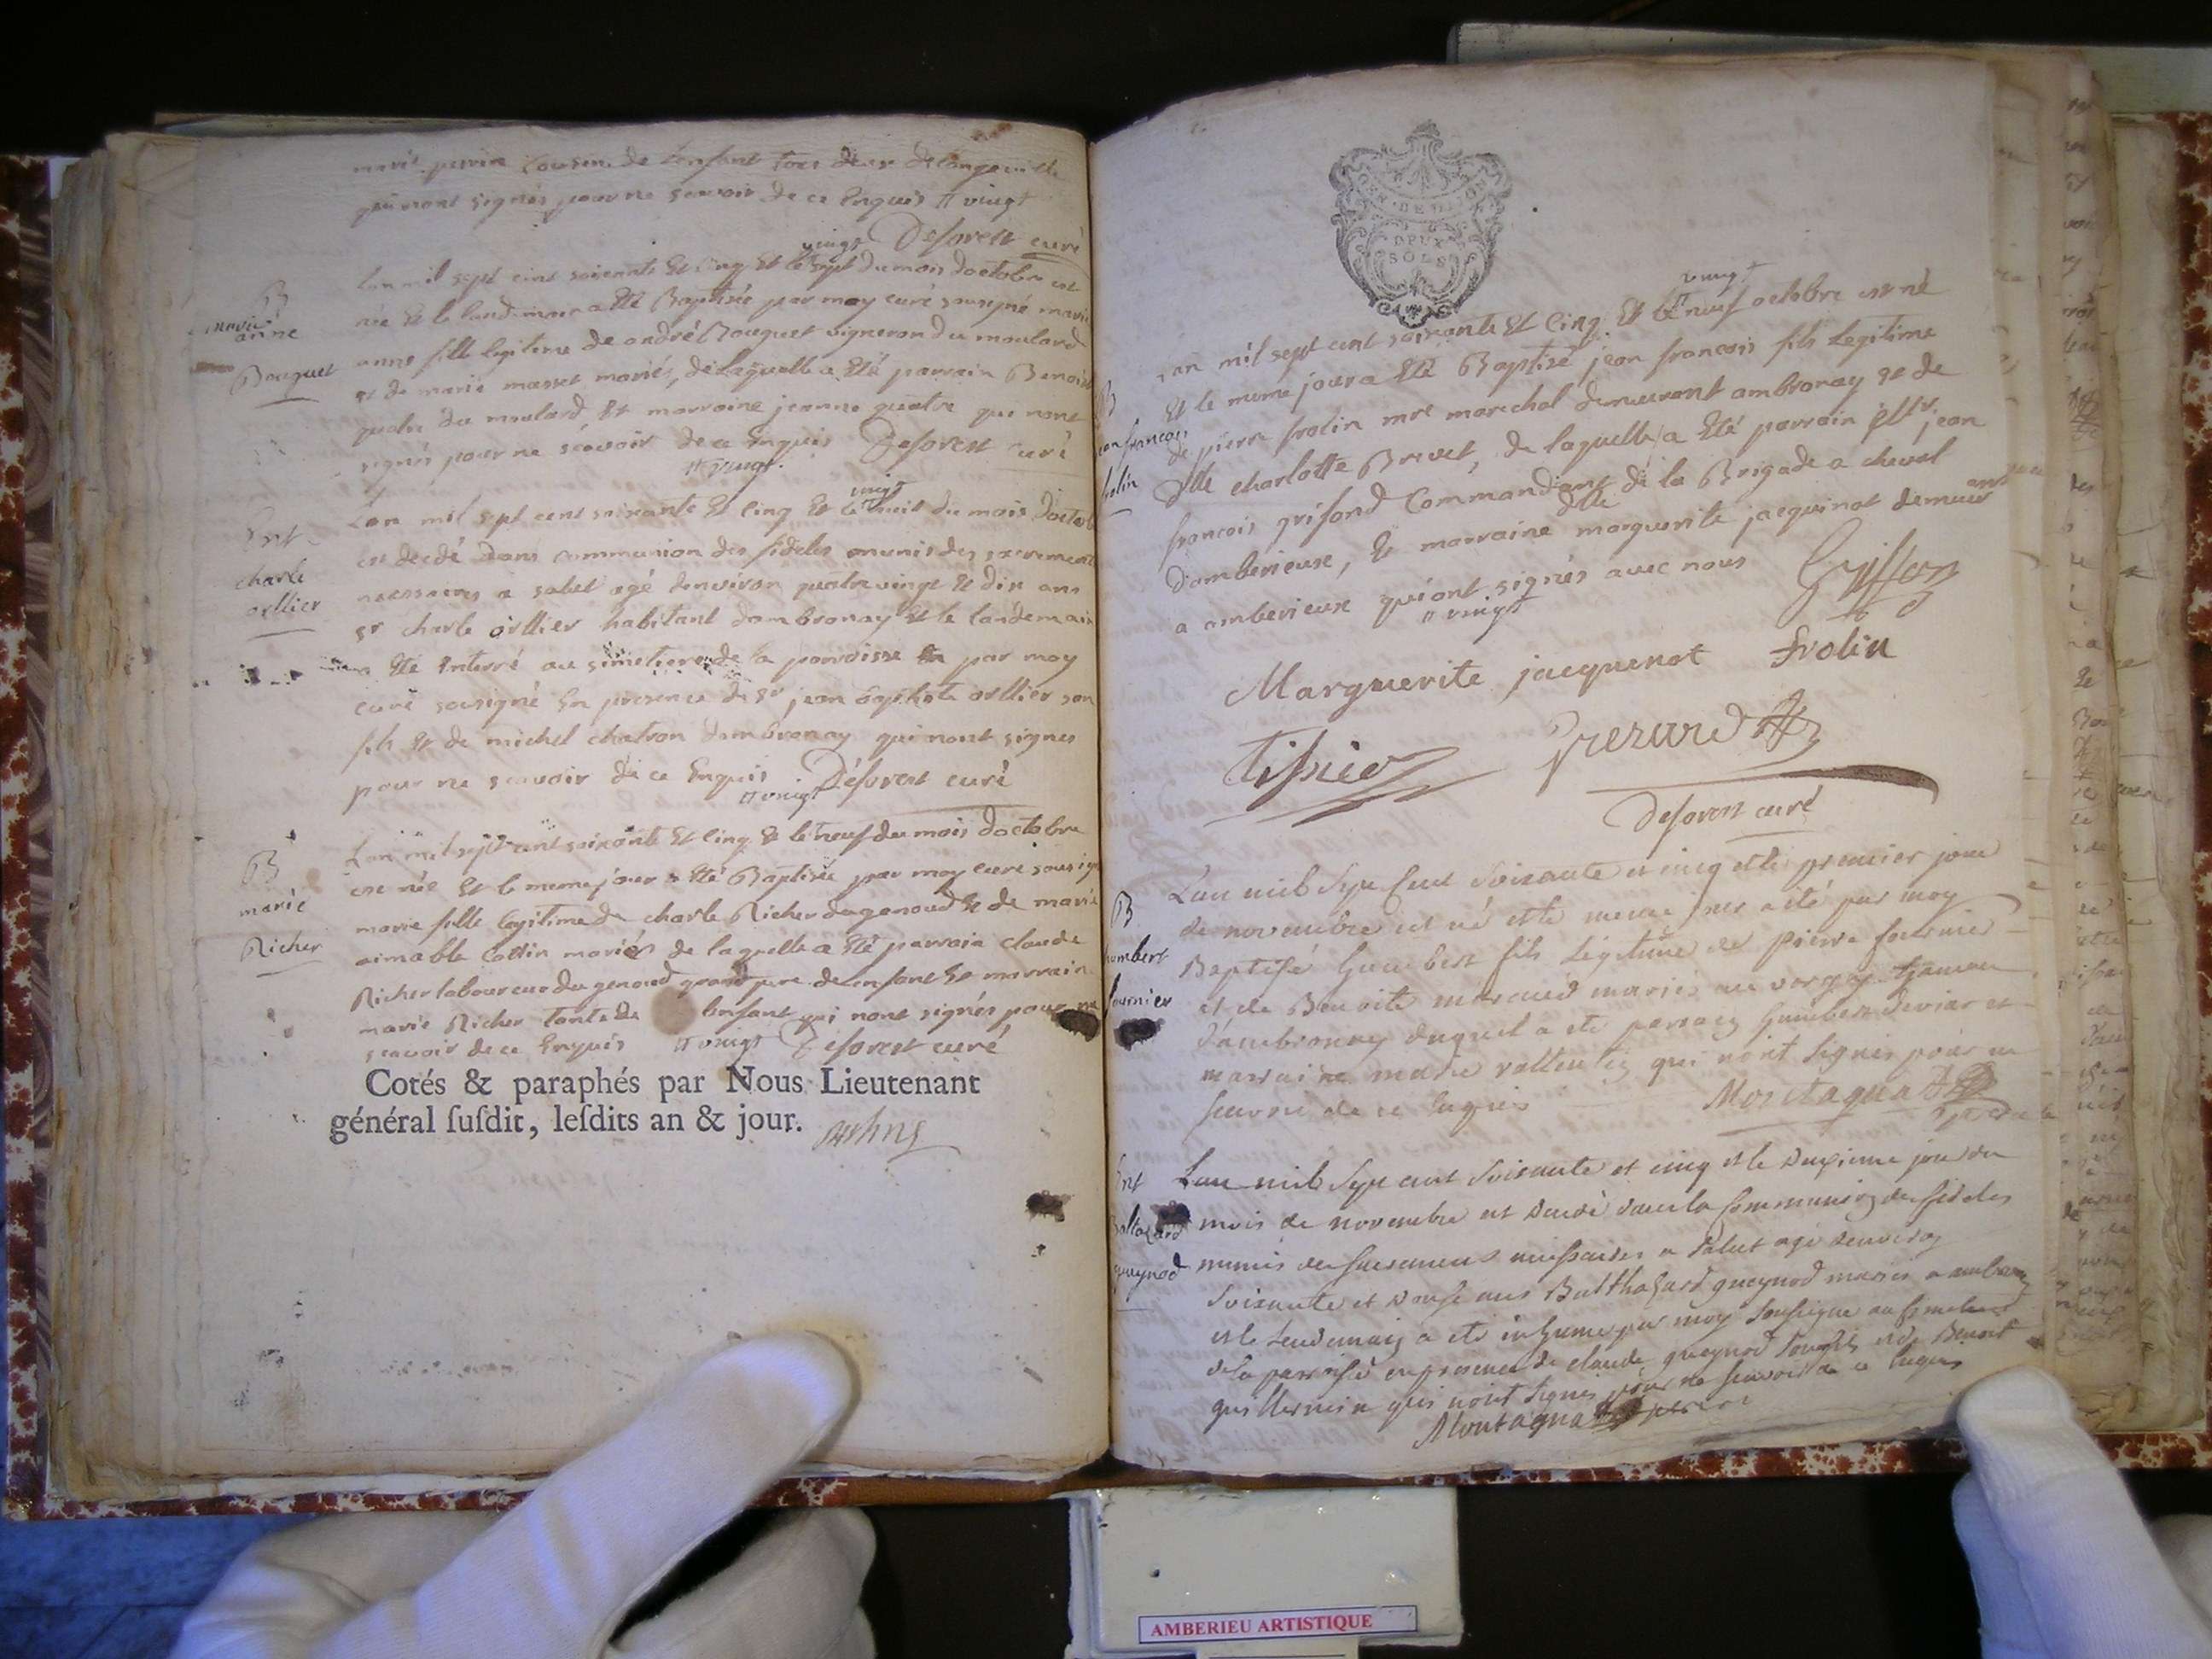 marie perrin Cousine de Lenfant tous deux de longeville
qui nont signés pour ne scavoir de ce Enquis # vingt
Deforest curé
vingt
Lan mil sept cent soixante Et Cinq Et le # sept du mois doctobre est
née Et le landemain a Eté Baptisée par moy curé sousigné marie
anne fille legitime de andré Bouquet vigneron du moulard
et de marie masset mariés, de laquelle a Eté parrain Benoist
quatre du moulard Et marraine jeanne quatre qui nont
signés pour ne scavoir de ce Enquis Deforest curé
# vingt.
B
marie
anne
Bouquet
vingt
Lan mil sept cent soixante Et Cinq Et le # huit du mois doctob
est decedé dans communion des fideles munis des sacrement
necessaires a salut agé denviron quatre vingt Et dix ans
sr charle orllier habitant dambronay Et le landemain
a Eté Enterré au simetiere de la parroisse par moy
curé sousigné En presence de sr jean baptiste orllier son
fils Et de michel chatron dambronay qui nont signes
pour ne scavoir de ce Enquis Deforest curé
# vingt
Ent
charle
orllier
Lan mil sept cent soixante Et Cinq Et le # neuf du mois doctobre
est née Et le meme jour a Eté Baptisée par moy curé sousigné
marie fille legitime de charle Richer du genoud Et de marie
aimable Cottin mariés de laquelle a Eté parrain claude
Richer laboureur du genoud grand pere de lenfant Et marraine
marie Richer tante de lenfant qui nont signés pour ne
scavoir de ce Enquis # vingt Deforest curé
B
marie
Richer
Cotés & paraphés par Nous Lieutenant
général susdit, lesdits an & jour.
GEN·DE DIJON
DEUX
SOLS
vingt
Lan mil sept cent soixante Et Cinq Et le # neuf octobre est né
Et le meme jour a Eté Baptisé jean francois fils Legitime
de pierre frolin mre marechal demeurant ambronay et de
Dlle charlotte Brevet, de laquelle a Eté parrain jean
francois grifond Commandant de la Brigade a cheval
damberieux, Et marraine Dlle marguerite jacquinot demeurant
a amberieux qui ont signés avec nous
# vingt
B
jean francois
frolin
Griffon
Marguerite jacquenot frolin
Tissier
Grezard
Deforest curé
Lan mil Sept Cent Soixante et cinq et le premier jour
de novembre est né et le meme jour a été par moy
Baptisé humbert fils Legitime de pierre fournier
et de Benoite mariés au
dambronay duquel a eté parrain humbert et
marraine marie qui nont signés pour ne
scavoir de ce Enquis Montagnat
B
humbert
fournier
Lan mil Sept cent Soixante et cinq et le Deuxieme jour du
mois de novembre est decedé dans la communion des fideles
munis des sacremens necessaires a salut agé denviron
Soixante et douse ans Balthazard gueynod mariés a
et le Lendemain a eté inhumé par moy Soussigné au simetiere
de la parroisse en presence de claude gueynod son fils et de Benoit
guillermin qui nont Signés pour ne scavoir de ce Enquis
Montagnat
Ent
Baltazard
gueynod
AMBERIEU ARTISTIQUE